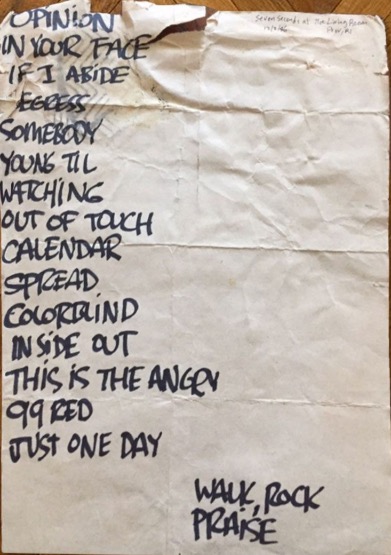 Seven Seconds at The Living Room
OPINION
IN YOUR FACE
IF I ABIDE
EGRESS
SOMEBODY
YOUNG TIL
WATCHING
OUT OF TOUCH
CALENDAR
SPREAD
COLORBLIND
INSIDE OUT
THIS IS THE ANGRY
99 RED
JUST ONE DAY
WALK, ROCK
PRAISE